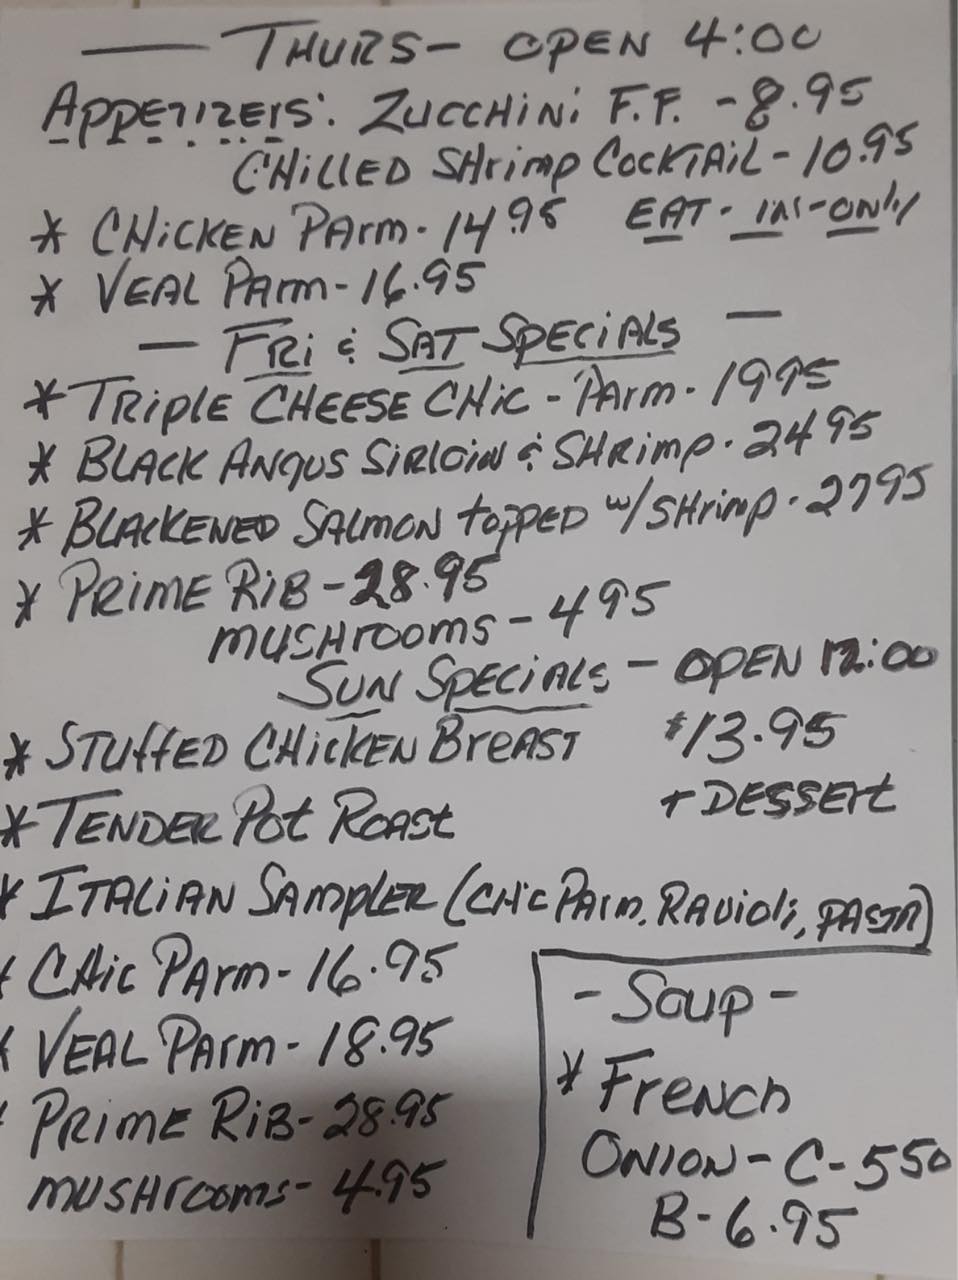 — THURS - OPEN 4:00
APPETIZERS: ZUCCHINI F.F. - 8.95
CHILLED SHRIMP COCKTAIL - 10.95
* CHICKEN PARM - 14.95 EAT-IN-ONLY
* VEAL PARM - 16.95
— FRI & SAT SPECIALS —
* TRIPLE CHEESE CHIC - PARM - 19 95
* BLACK ANGUS SIRLOIN & SHRIMP - 24 95
* BLACKENED SALMON TOPPED W/ SHRIMP - 27 95
* PRIME RIB - 28.95
MUSHROOMS - 4 95
SUN SPECIALS - OPEN 12:00
* STUFFED CHICKEN BREAST $13.95
* TENDER POT ROAST + DESSERT
* ITALIAN SAMPLER (CHIC PARM, RAVIOLI, PASTA)
* CHIC PARM - 16.95
* VEAL PARM - 18.95
* PRIME RIB - 28.95
MUSHROOMS - 4.95
- SOUP -
* FRENCH
ONION - C - 5 50
B - 6.95